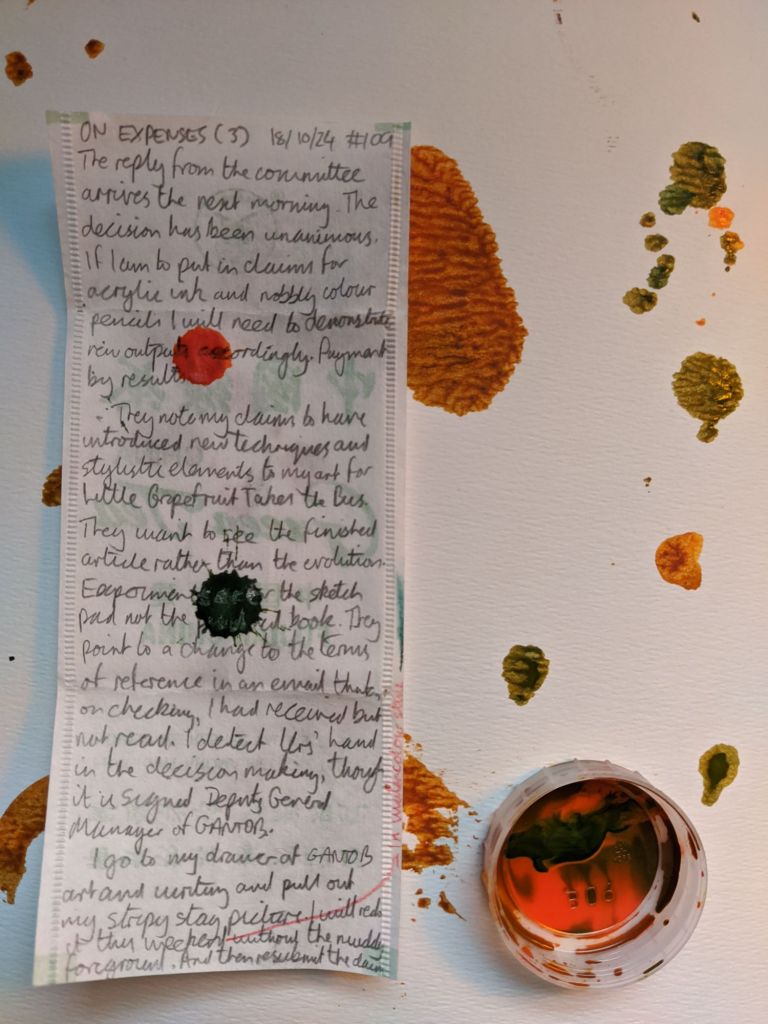 ON EXPENSES (3) 18/10/24 #109
The reply from the committee
arrives the next morning. The
decision has been unanimous.
If I am to put in claims for
acrylic ink and nobbly colour
pencils I will need to demonstrate
new outputs accordingly. Payment
by results.
They note my claims to have
introduced new techniques and
stylistic elements to my art for
Little Grapefruit Takes the Bus.
They want to see the finished
article rather than the evolution.
the sketch
pad not the book. They
point to a change to the terms
of reference in an email that,
on checking, I had received but
not read. I detect Urs' hand
in the decision making, though
it is signed Deputy General
Manager of GANTOB.
I go to my drawer of GANTOB
art and writing and pull out
my stripy stag picture. I will redo
it this weekend without the muddy
foreground. And then resubmit the claim
in watercolour